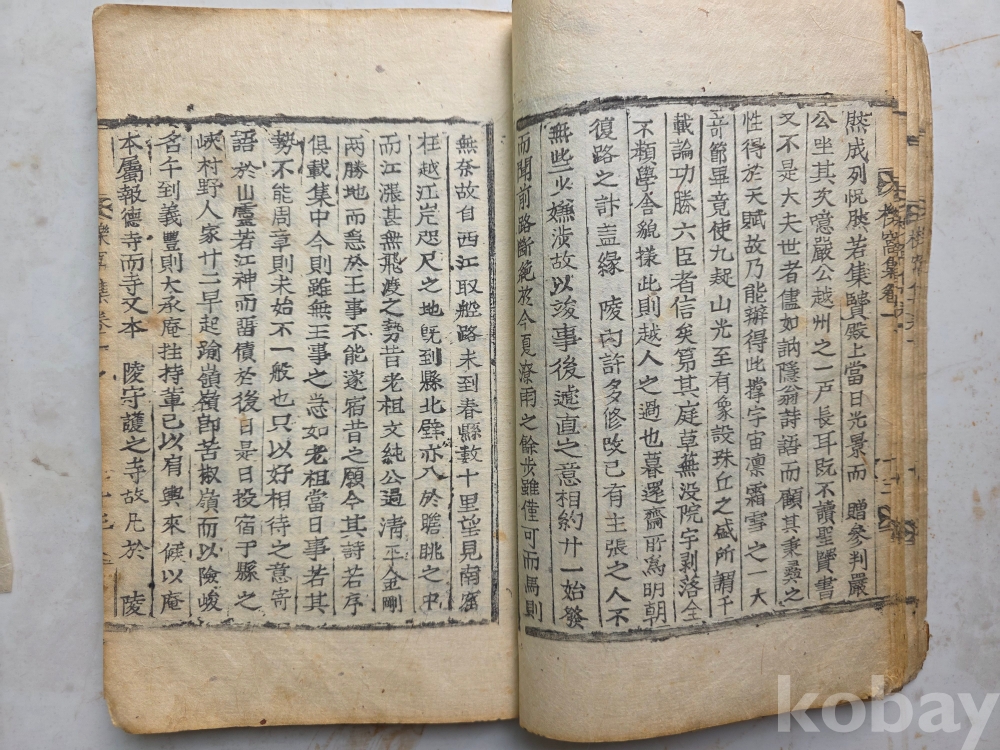 然成列怳然若集賢殿上當日光景而 贈參判嚴
公坐其亥噫嚴公越州之一戶長耳旣不讀聖賢書
又不是大夫世者儘如訥隱翁詩語而顧其秉彛之
性得於天賦故乃能辦得此撑宇宙凜霜雪之一大
奇節畢竟使九疑山光至有象設珠丘之盛所謂千
載論功勝六臣者信矣第其庭草蕪没院宇剥落全
不類學舍貌樣此則越人之過也暮還齋所爲明朝
復路之計盖緣 陵內許多修改已有主張之人不
無些少嫌渉故以竣事後遞直之意相約廿一始發
而聞前路斷絶於今夏潦雨之餘步雖僅可而馬則
無奈故自西江取船路未到春縣數十里望見南
在越江岸咫尺之地旣到縣北壁亦入於瞻眺之中
而江漲甚無飛渡之勢昔老祖文純公過淸平人金剛
兩勝地而急於王事不能遂宿昔之願今其詩若序
俱載集中今則雖無王事之急如老祖當日事若其
勢不能周章則未始不一般也只以好相待之意寄
語於山靈若江神而留債於後日是日投宿于縣之
峽村野人家廿二早起踰嶺嶺卽苦椒嶺而以險峻
名午到義豐則大承庵住持輩已以肩輿來候以庵
本屬報德寺而寺又本 陵守護之寺故凡於 陵
集卷一